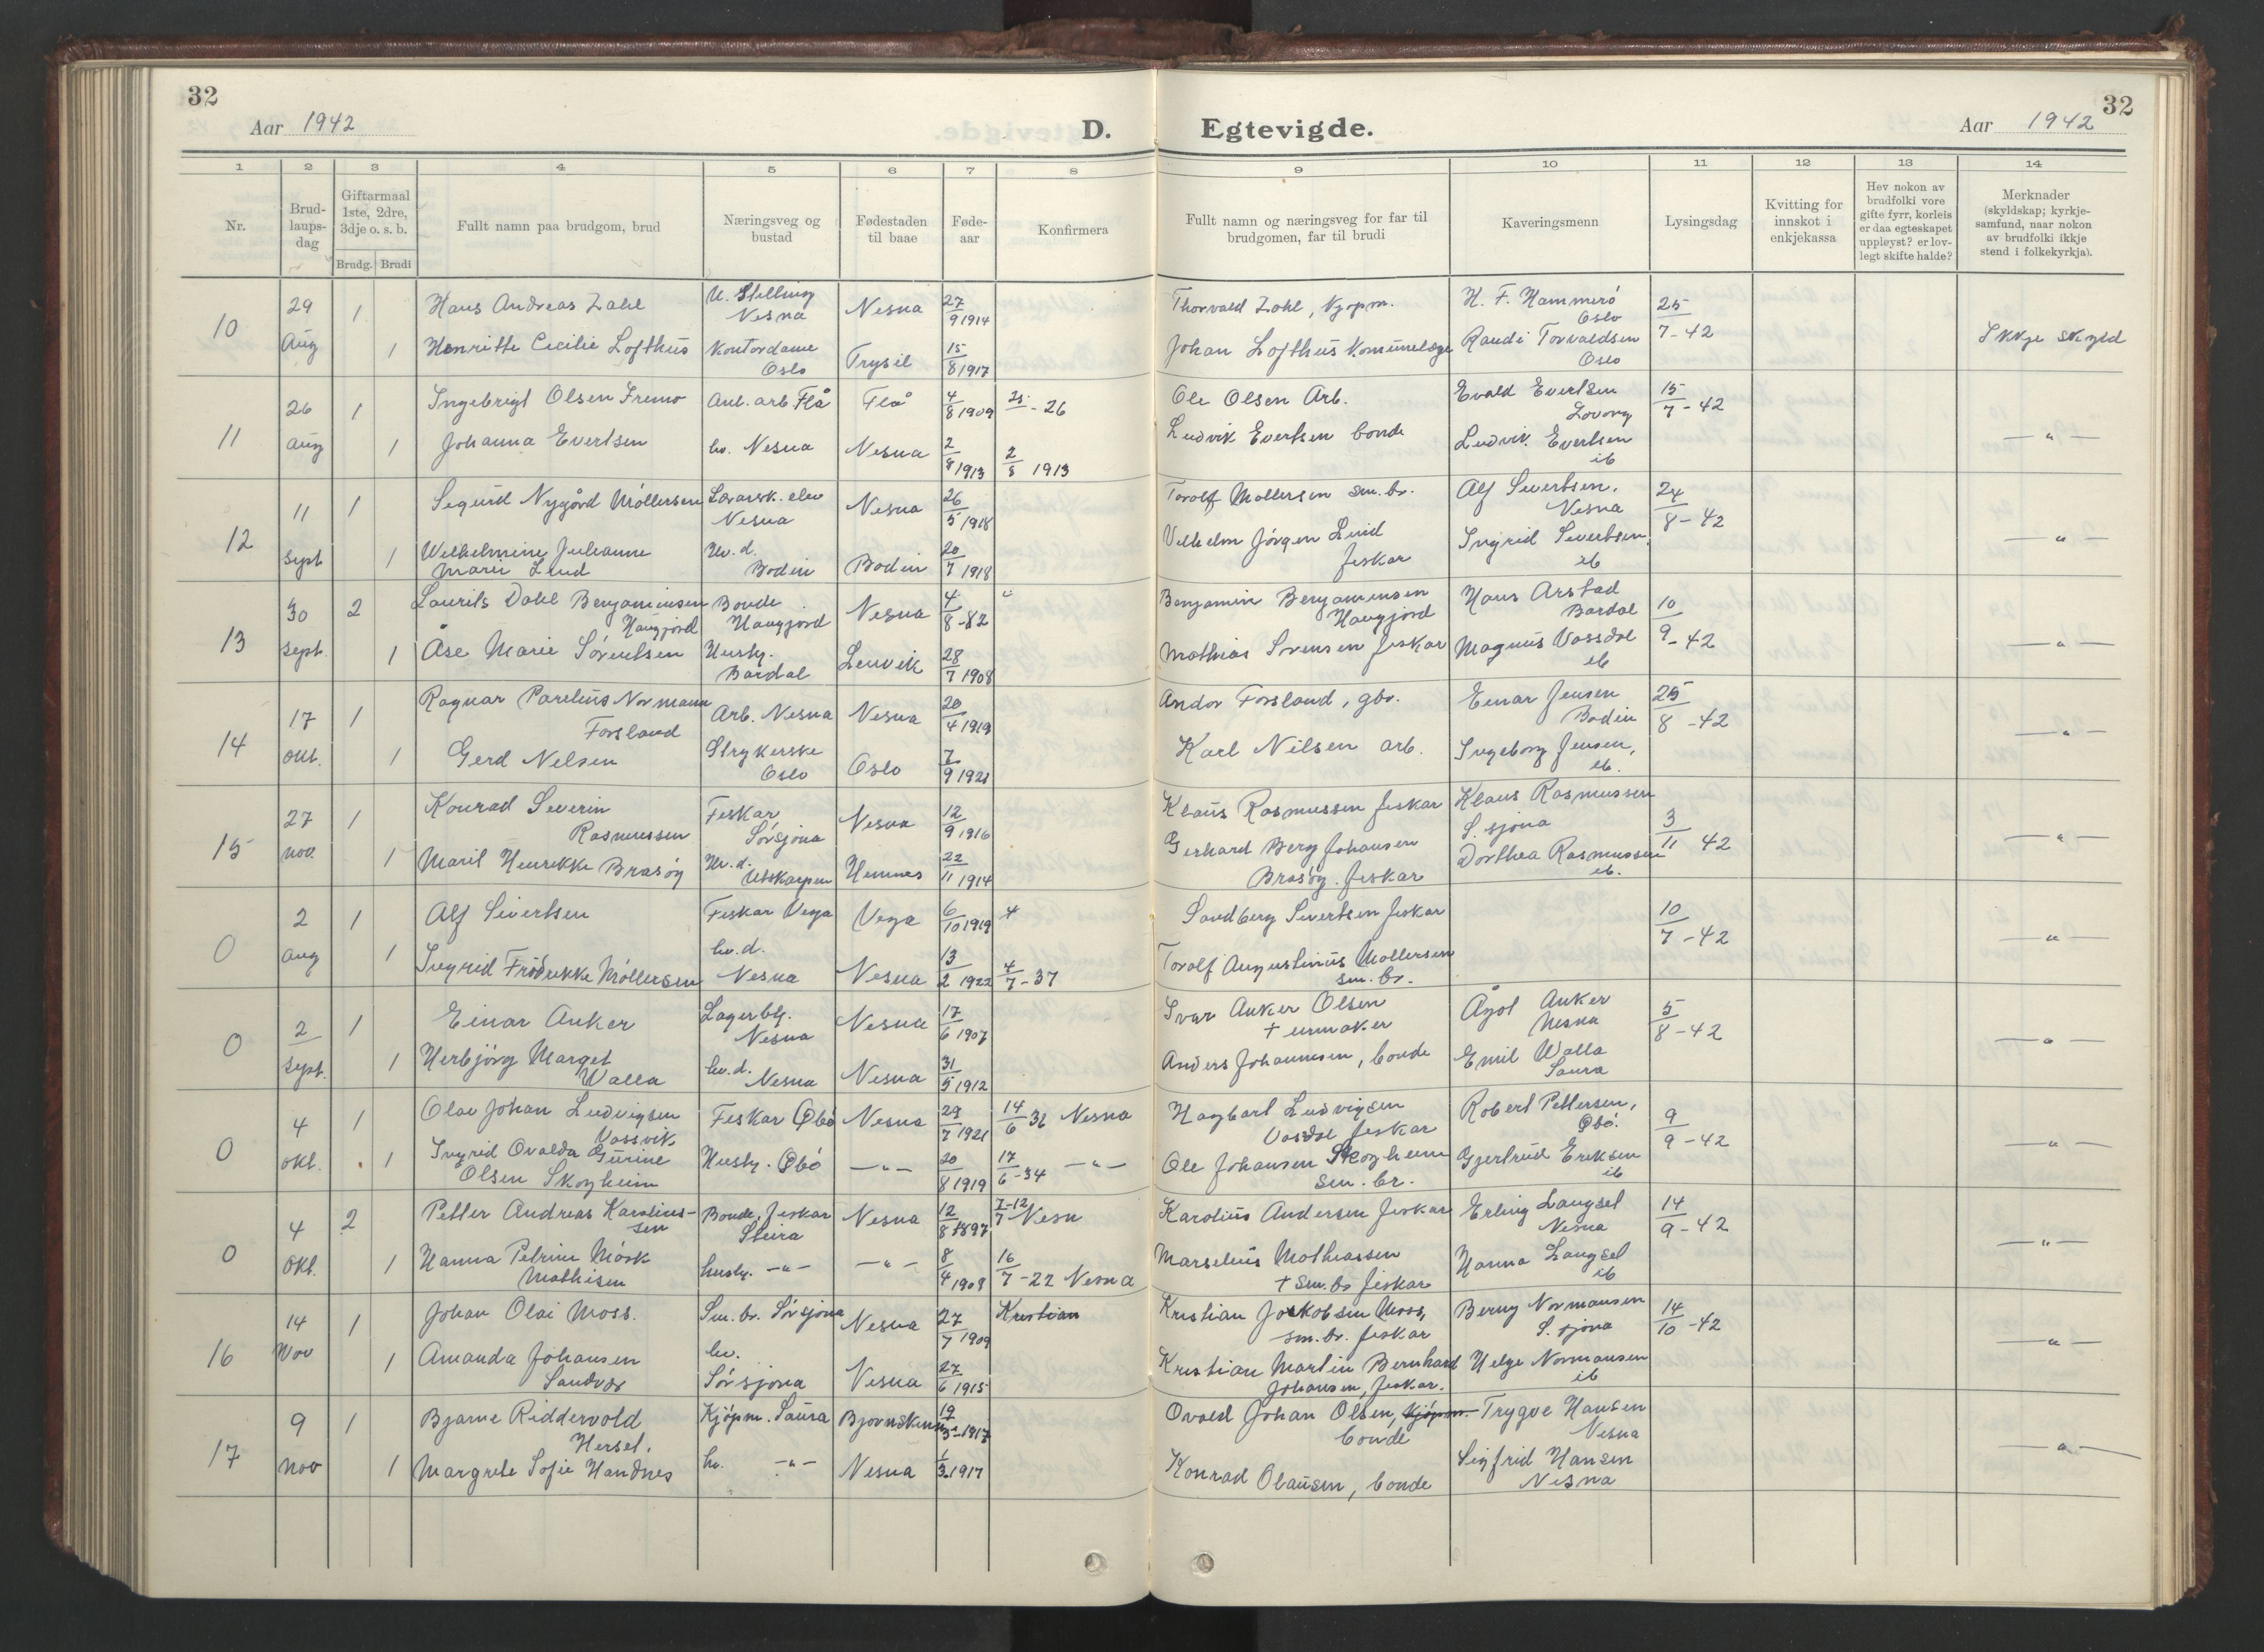 32
Aar 1942
D.
Egtevigde.
Aar 1942
32
1 2 3 4 5 6 7 8 9 10 11 12 13 14
Nr.
Brud-
laups-
dag
Giftarmaal
1ste, 2dre,
3dje o. s. b.
Brudg. Brudi
Fullt namn paa brudgom, brud
Næringsveg og
bustad
Fødestaden
til baae
Føde-
aar
Konfirmera
Fullt namn og næringsveg for far til
brudgomen, far til brudi
Kaveringsmenn
Lysingsdag
Kvitting for
innskot i
enkjekassa
Hev nokon av
brudfolki vore
gifte fyrr, korleis
er daa egteskapet
uppløyst? er lov-
legt skifte halde?
Merknader
(skyldskap; kyrkje-
samfund, naar nokon
av brudfolki ikkje
stend i folkekyrkja).
10
29
Aug
1
Hans Andreas Zahl
Nesna
Nesna
27/9 1914
Thorvald Zahl, Kjøpm.
H. F. Hammerö
Oslo
25/7-42
1
Henritte Cecilie Lofthus
Kontordame
Oslo
Trysil
15/8 1917
Johan Lofthus Komunelæge
Randi Torvaldsen
Oslo
Ikkje skyld
11
26
Aug
1
Ingebrigt Olsen Fremo
Anl. arb Flå
Flå
4/8 1909
- 26
Ole Olsen Arb.
Evald Evertsen
Lovong
15/7-42
1
Johanna Evertsen
hv. Nesna
Nesna
2/8 1913
2/8 1913
Ludvik Evertsen bonde
Ludvik Evertsen
ib
— " —
12
11
Sept
1
Sigurd Nygård Möllersen
Lærarsk. elev
Nesna
Nesna
26/5 1918
Torolf Möllersen sm. br.
Alf Sivertsen,
Nesna
24/8-42
1
Wilhelmine Julianne
Marie Lund
Hv. d.
Bodin
Bodin
20/7 1918
Vilhelm Jörgen Lund
fiskar
Ingrid Sivertsen,
ib
— " —
13
30
Sept.
2
Laurits Dahl Benjaminsen
Haugjord
Bonde
Haugjord
Nesna
4/8-82
Benjamin Benjaminsen
Haugjord
Hans Arstad
Bardal
10/9-42
1
Åse Marie Sörentsen
Husty.
Bardal
Lenvik
28/7 1908
Mathias Sörensen fiskar
Magnus Vassdal
ib
— " —
14
17
okt.
1
Ragnar Parelius Normann
Forsland
Arb. Nesna
Nesna
20/4 1919
Andor Forsland, gbr.
Einar Jensen
Bodin
25/8-42
1
Gerd Nelsen
Strykerske
Oslo
Oslo
7/9 1921
Karl Nilsen arb.
Ingeborg Jensen,
ib.
— " —
15
27
nov.
1
Konrad Severin
Rasmussen
Feskar
Sörsjona
Nesna
12/9 1916
Klaus Rasmussen feskar
Klaus Rasmussen
S. sjona
3/11 42
1
Marit Henrikke Brasöy
Hv. d.
Utskarpen
Hemnes
22/11 1914
Gerhard Berg Johansen
Brasöy. feskar
Dorthea Rasmussen
ib.
— " —
0
2
Aug
1
Alf Sivertsen
Feskar Vega
Vega
6/10 1919
4
Sandberg Sivertsen feskar
10/7-42
1
Ingrid Fredrikke Möllersen
hv. d.
Nesna
Nesna
13/2 1922
4/7-37
Torolf Augustinus Möllersen
sm. br.
— " —
0
2
Sept.
1
Einar Anker
Lagerbtj.
Nesna
Nesna
17/6 1907
Ivar Anker Olsen
† urmaker
Ågot Anker
Nesna
5/8-42
1
Herbjörg Marget
Walla
hv. d.
Nesna
Nesna
31/5 1912
Anders Johannesen, bonde
Emil Walla
Saura
— " —
0
4
okt.
1
Olav Johan Ludvigsen
Vassvik
Feskar Øbö
Nesna
29/7 1921
14/6 36 Nesna
Hagbart Ludvigsen
Vasdal feskar
Robert Pettersen,
Øbö.
9/9-42
1
Ingrid Ovalda Gurine
Olsen Skogheim
Husty. Øbö
— " —
20/8 1919
17/6-34 — " —
Ole Johansen Skogheim
sm. br.
Gjertrud Eriksen
ib
— " —
0
4
Okt.
2
Petter Andreas Karolius-
sen
Bonde, feskar
Steira
Nesna
12/8 1897
7-12/7 Nesn
Karolius Andersen feskar
Erling Langset
Nesna
14/9-42
1
Hanna Petrine Mösk
Mathisen
husty. — " —
— " —
8/4 1908
16/7-22 Nesna
Marselius Mathiassen
† sm. br fiskar
Hanna Langset
ib
— " —
16
14
Nov
1
Johan Olai Moss.
Sm. br. Sörsjona
Nesna
27/7 1909
Kristian
Kristian Jakobsen Moss,
sm. br. feskar
Berny Normansen
S. sjona
14/10-42
1
Amanda Johansen
Sandvær
hv.
Sörsjona
Nesna
27/6 1915
Kristian Martin Bernhard
Johansen, feskar.
Helge Normansen
ib
— " —
17
9
nov
1
Bjarne Riddervold
Herset.
Kjöpm. Saura
19/5-1917
Ovald Johan Olsen, Kjöpm.
bonde
Trygve Hansen
Nesna
1
Margrete Sofie Handnes
hv. — " —
Nesna
1/3 1917
Konrad Olausen, bonde
Sigfrid Hansen
Nesna
— " —